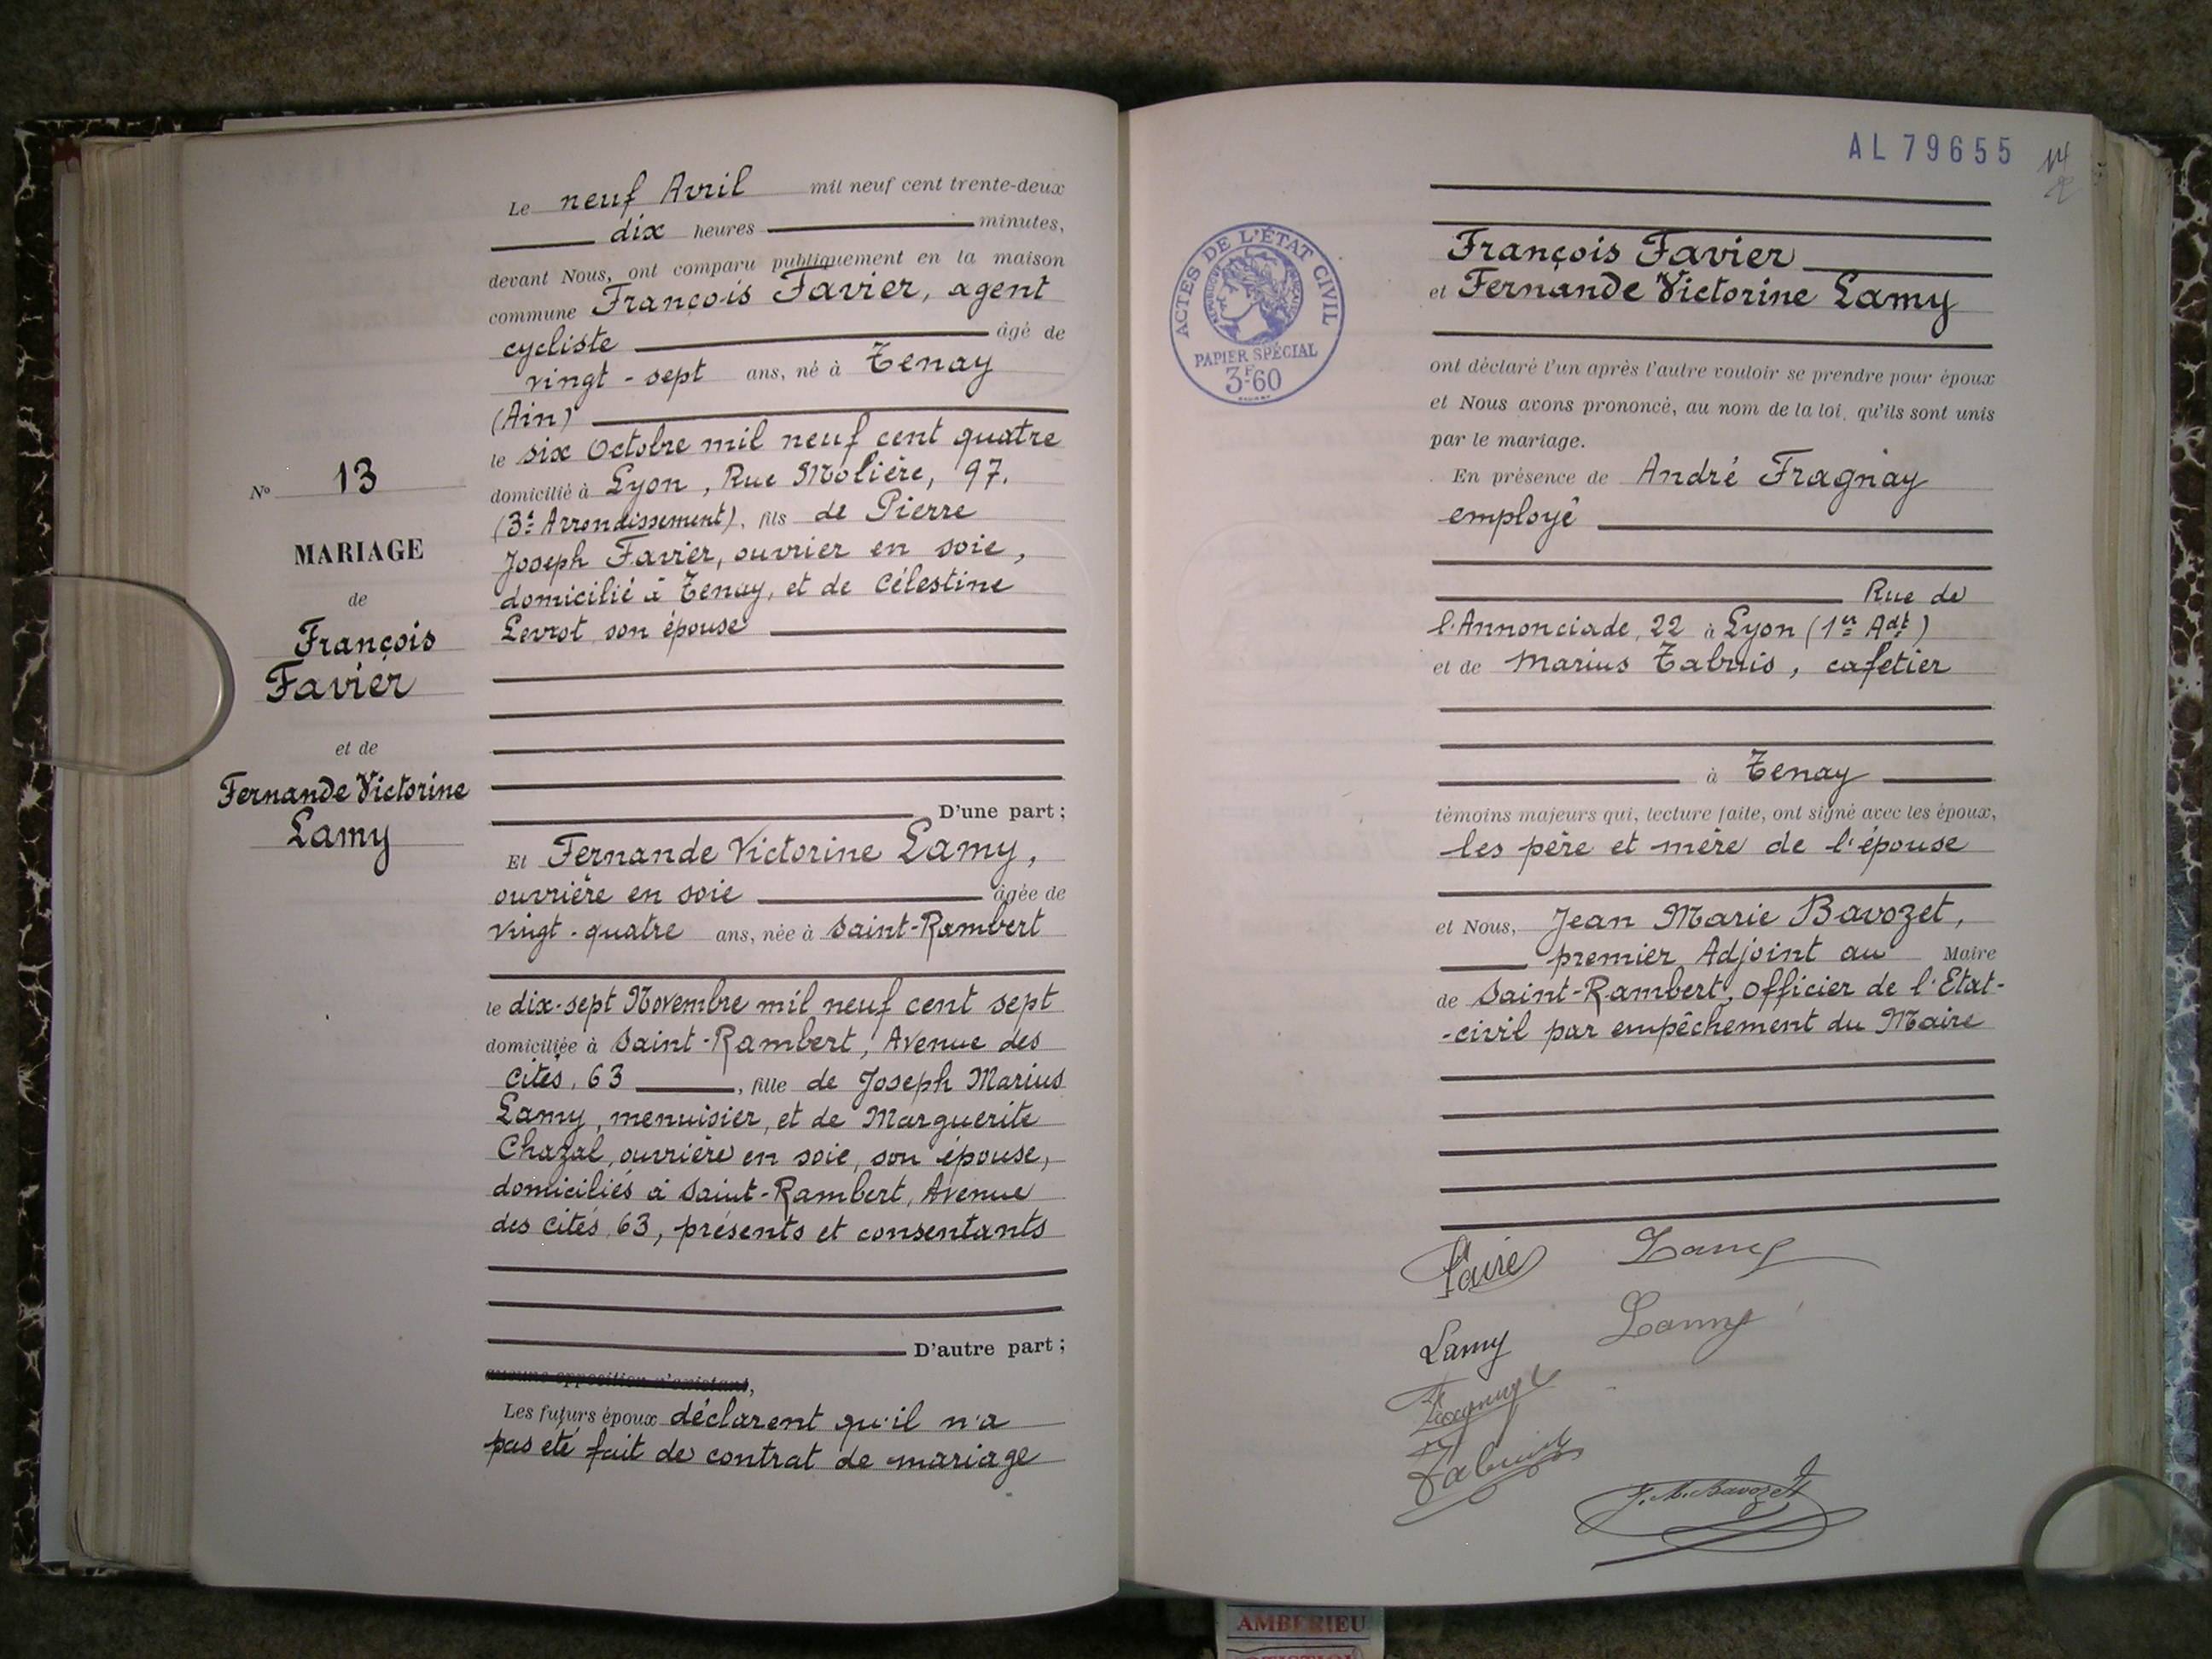 N° 13
MARIAGE
de
François
Favier
et de
Fernande Victorine
Lamy
Le neuf Avril mil neuf cent trente-deux
dix heures minutes,
devant Nous, ont comparu publiquement en la maison
commune François Favier, agent
cycliste âgé de
vingt-sept ans, né à Tenay
(Ain)
le six Octobre mil neuf cent quatre
domicilié à Lyon, Rue Molière, 97.
(3e Arrondissement), fils de Pierre
Joseph Favier, ouvrier en soie,
domicilié à Tenay, et de Célestine
Levrot son épouse
D'une part;
Et Fernande Victorine Lamy,
ouvrière en soie âgée de
vingt-quatre ans, née à Saint-Rambert
le dix-sept Novembre mil neuf cent sept
domiciliée à Saint-Rambert, Avenue des
Cités, 63, fille de Joseph Marius
Lamy, menuisier, et de Marguerite
Chazal, ouvrière en soie, son épouse,
domiciliés à Saint-Rambert, Avenue
des Cités, 63, présents et consentants
D'autre part;
aucune opposition n'existant,
Les futurs époux déclarent qu'il n'a
pas été fait de contrat de mariage
AL 79655
ACTES DE L'ÉTAT CIVIL
PAPIER SPÉCIAL
3F60
François Favier
et Fernande Victorine Lamy
ont déclaré l'un après l'autre vouloir se prendre pour époux
et Nous avons prononcé, au nom de la loi, qu'ils sont unis
par le mariage.
En présence de André Fragnay
employé
Rue de
l'Annonciade, 22 à Lyon (1er Adt)
et de Marius Tabuis, cafetier
à Tenay
témoins majeurs qui, lecture faite, ont signé avec les époux,
les père et mère de l'épouse
et Nous, Jean Marie Bavozet,
premier Adjoint au Maire
de Saint-Rambert, Officier de l'Etat-
-civil par empêchement du Maire
Lamy
Lamy
Lamy
Fragnay
Tabuis
J. M. Bavozet
AMBERIEU